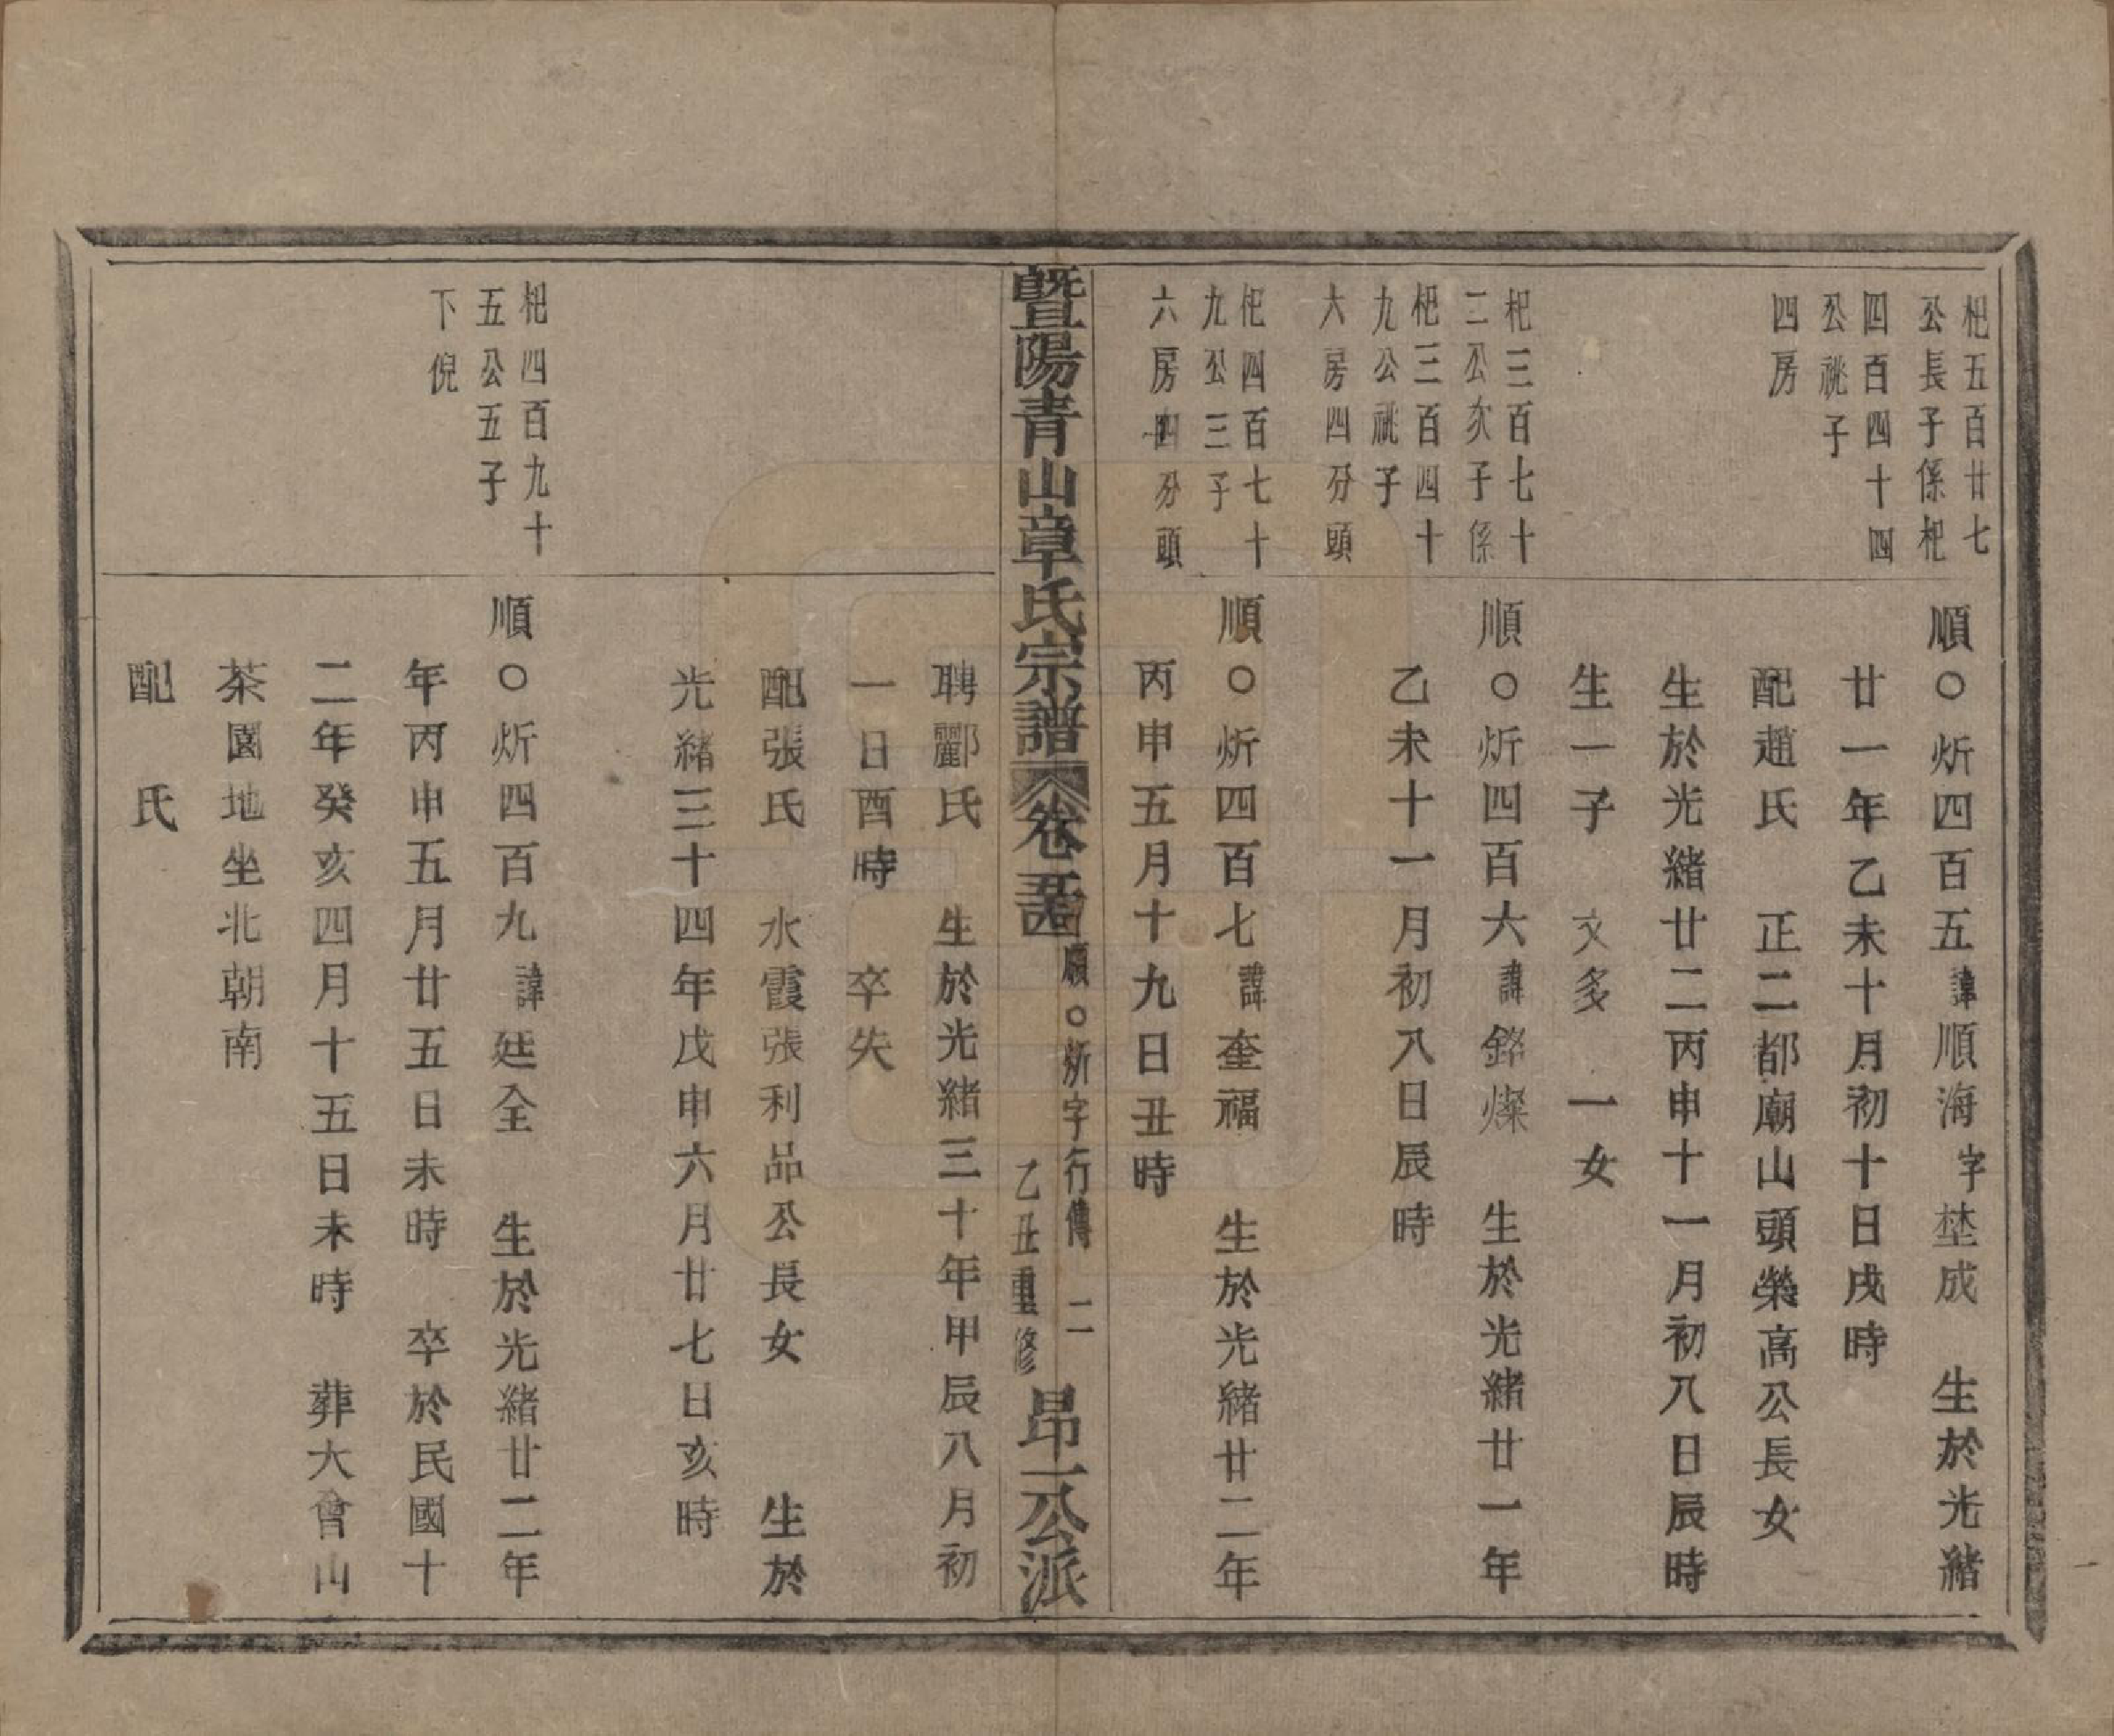 杷五百廿七
公長子係杷
四百四十四
公祧子
四房
順〇炘四百五諱順海字埜成 生於光緒
廿一年乙未十月初十日戌時
配趙氏 正二都廟山頭榮高公長女
生於光緒廿二丙申十一月初八日辰時
生一子 文多 一女
杷三百七十
二公次子係
杷三百四十
九公祧子
大房四分頭
順〇炘四百六諱銘燦 生於光緒廿一年
乙未十一月初八日辰時
杷四百七十
九公三子
六房四分頭
順〇炘四百七諱奎福 生於光緒廿二年
丙申五月十九日丑時
暨陽青山章氏宗譜 卷 順〇炘字行傳 二 乙丑重修 昂一公派
聘酈氏 生於光緒三十年甲辰八月初
一日酉時 卒失
配張氏 水霞張利品公長女 生於
光緒三十四年戊申六月廿七日亥時
杷四百九十
五公五子
下倪
順〇炘四百九諱廷全 生於光緒廿二年
年丙申五月廿五日未時 卒於民國十
二年癸亥四月十五日未時 葬大會山
茶園地坐北朝南
配 氏